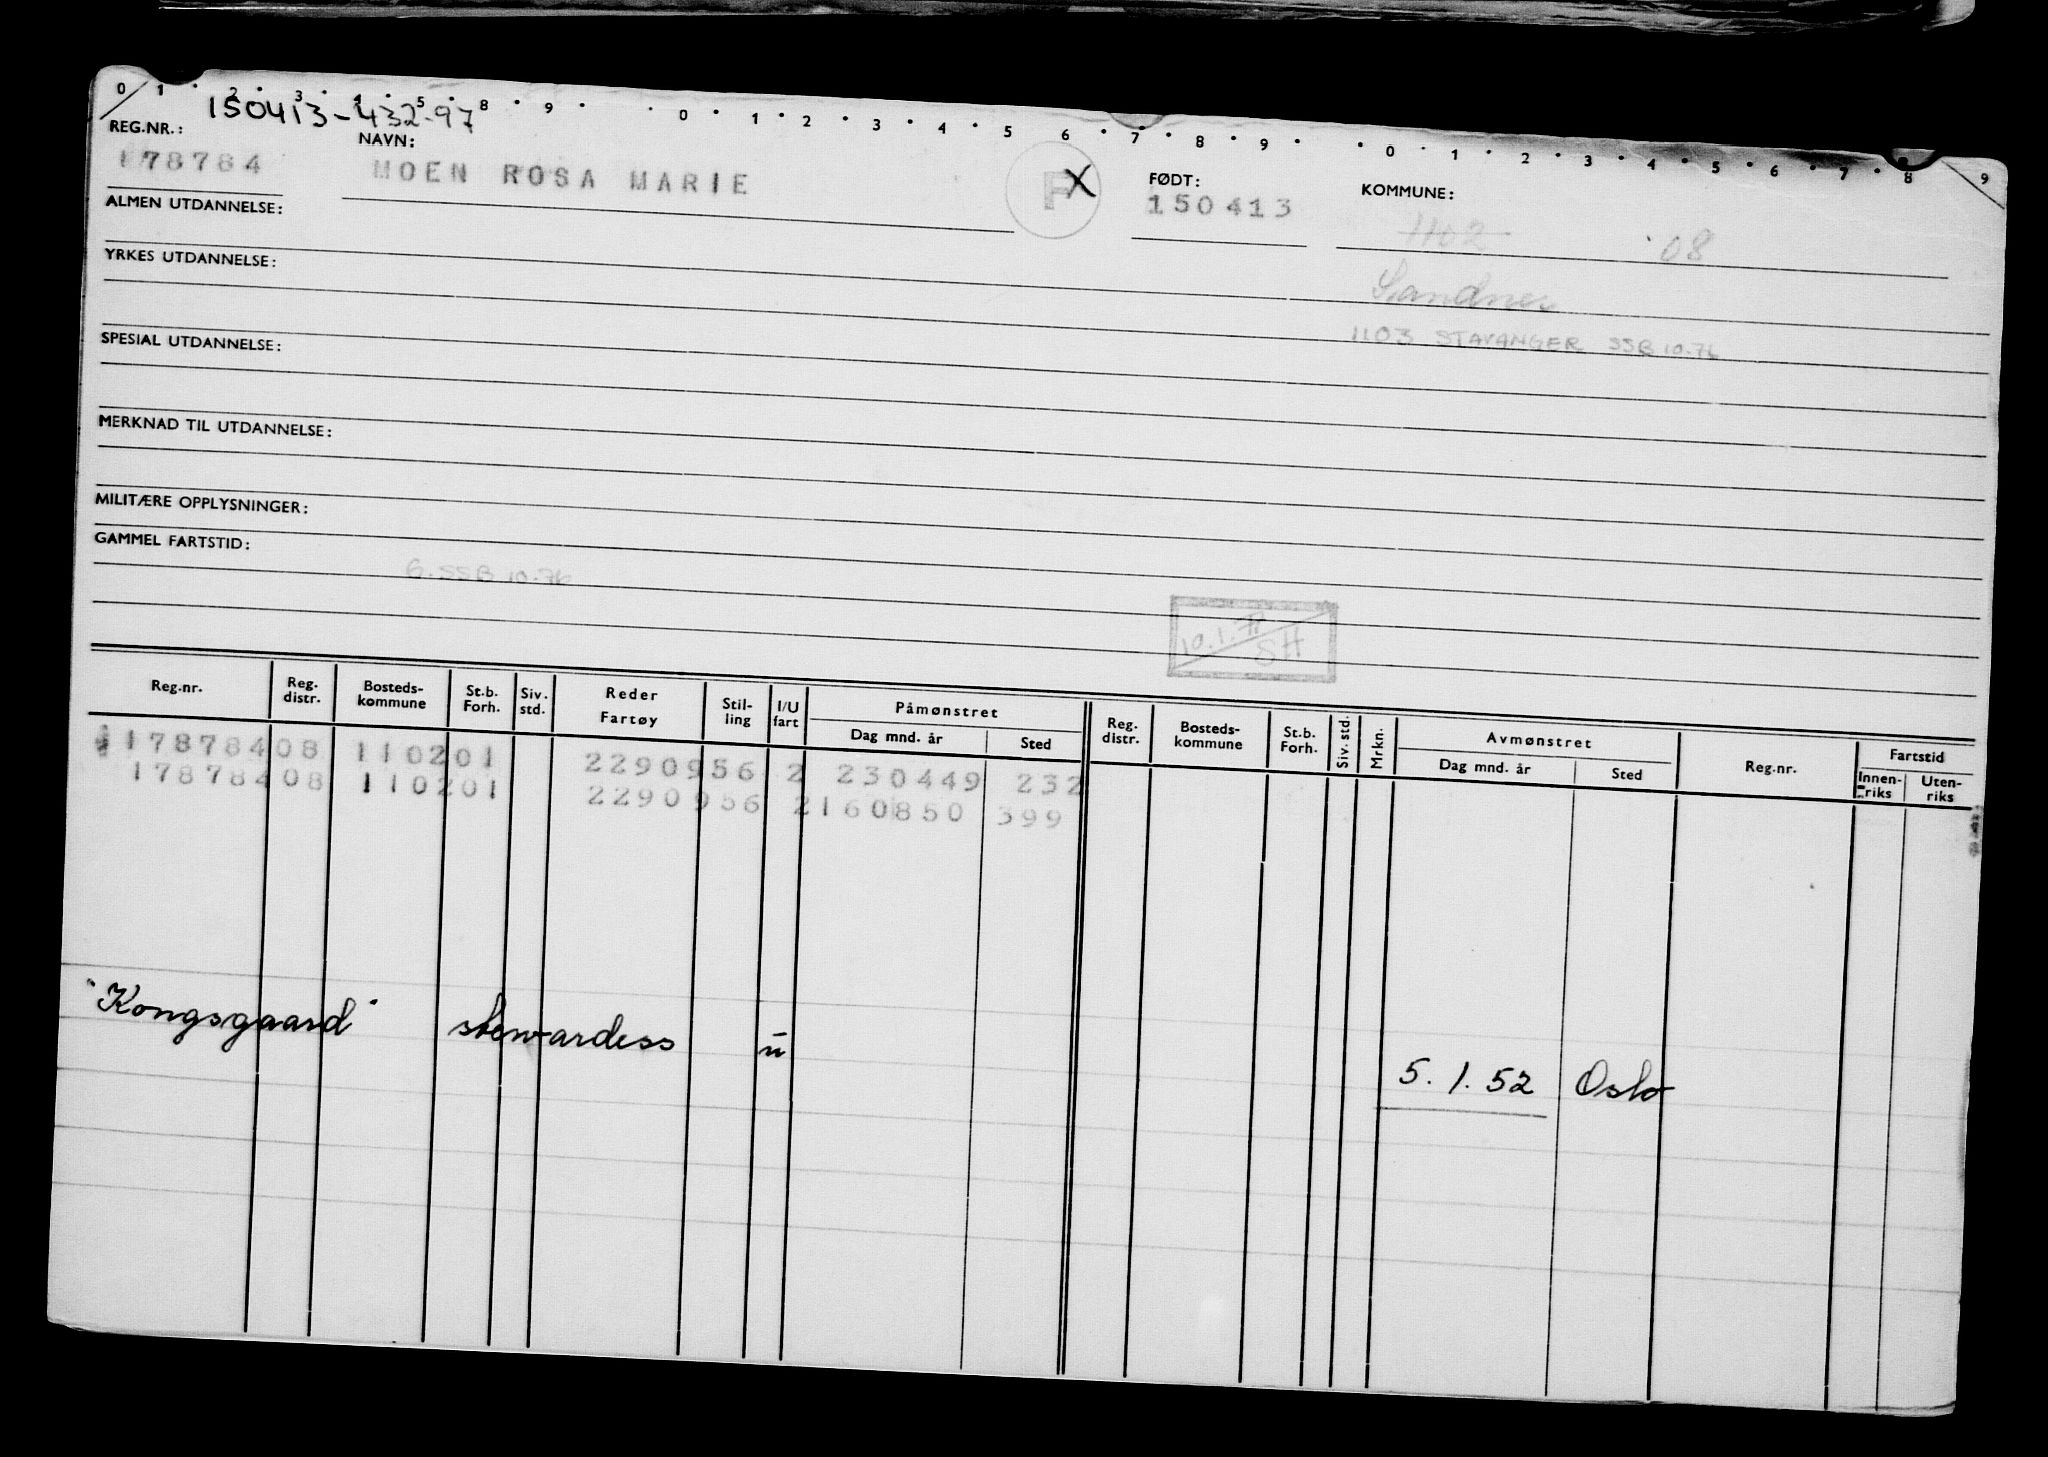 0 1 2 3 4 5 8 9 0 1 2 3 4 5 6 7 8 9 0 1 2 3 4 5 6 7 8 9
150413-432-97
REG.NR.: NAVN: FØDT: KOMMUNE:
178784 MOEN ROSA MARIE F X 150413 1102 08
ALMEN UTDANNELSE:
YRKES UTDANNELSE: Sandnes
1103 STAVANGER SSB 10.76
SPESIAL UTDANNELSE:
MERKNAD TIL UTDANNELSE:
MILITÆRE OPPLYSNINGER:
GAMMEL FARTSTID:
6. SSB 10.76
10.1. SH
Reg.nr. Reg. distr. Bosteds-kommune St.b. Forh. Siv. std. Reder Fartøy Stil-ling I/U fart Påmønstret Dag mnd. år Sted Reg. distr. Bosteds-kommune St.b. Forh. Siv. std. Mrkn. Avmønstret Dag mnd. år Sted Reg.nr. Fartstid Innen-riks Uten-riks
178784 08 1102 01 2290956 2 230449 232
178784 08 1102 01 2290956 2 160850 399
"Kongsgaard" stewardess u
5. 1. 52 Oslo